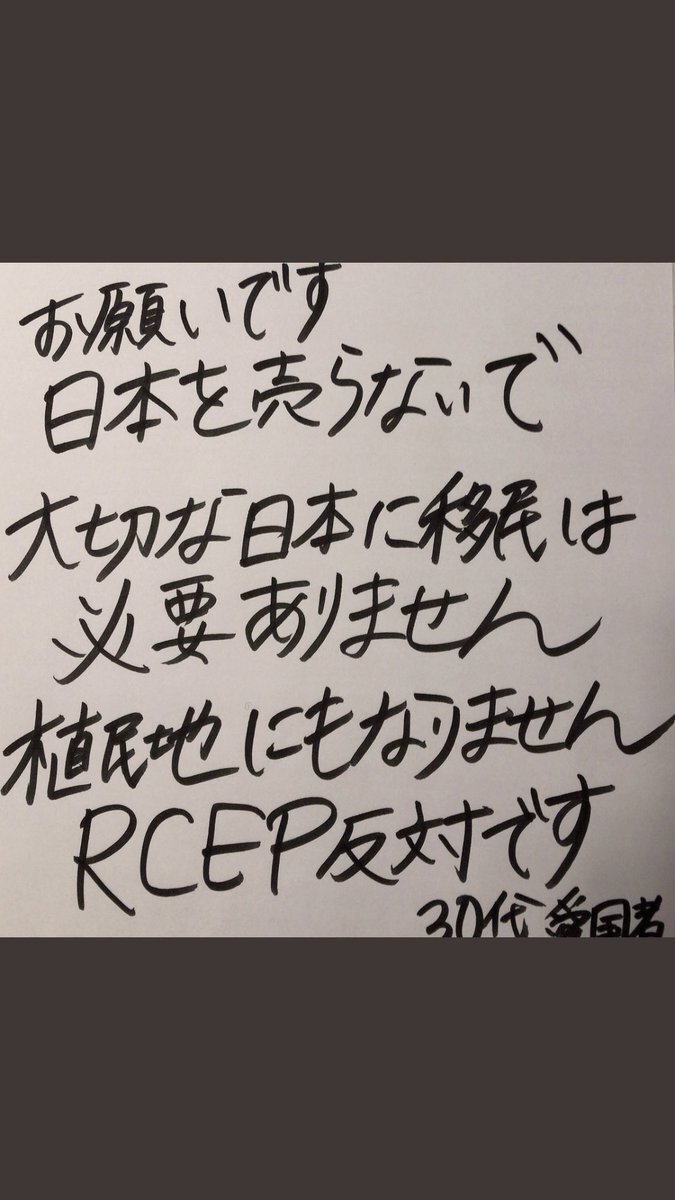 お願いです
日本を売らないで
大切な日本に移民は
必要ありません
植民地にもなりません
RCEP反対です
30代 愛国者